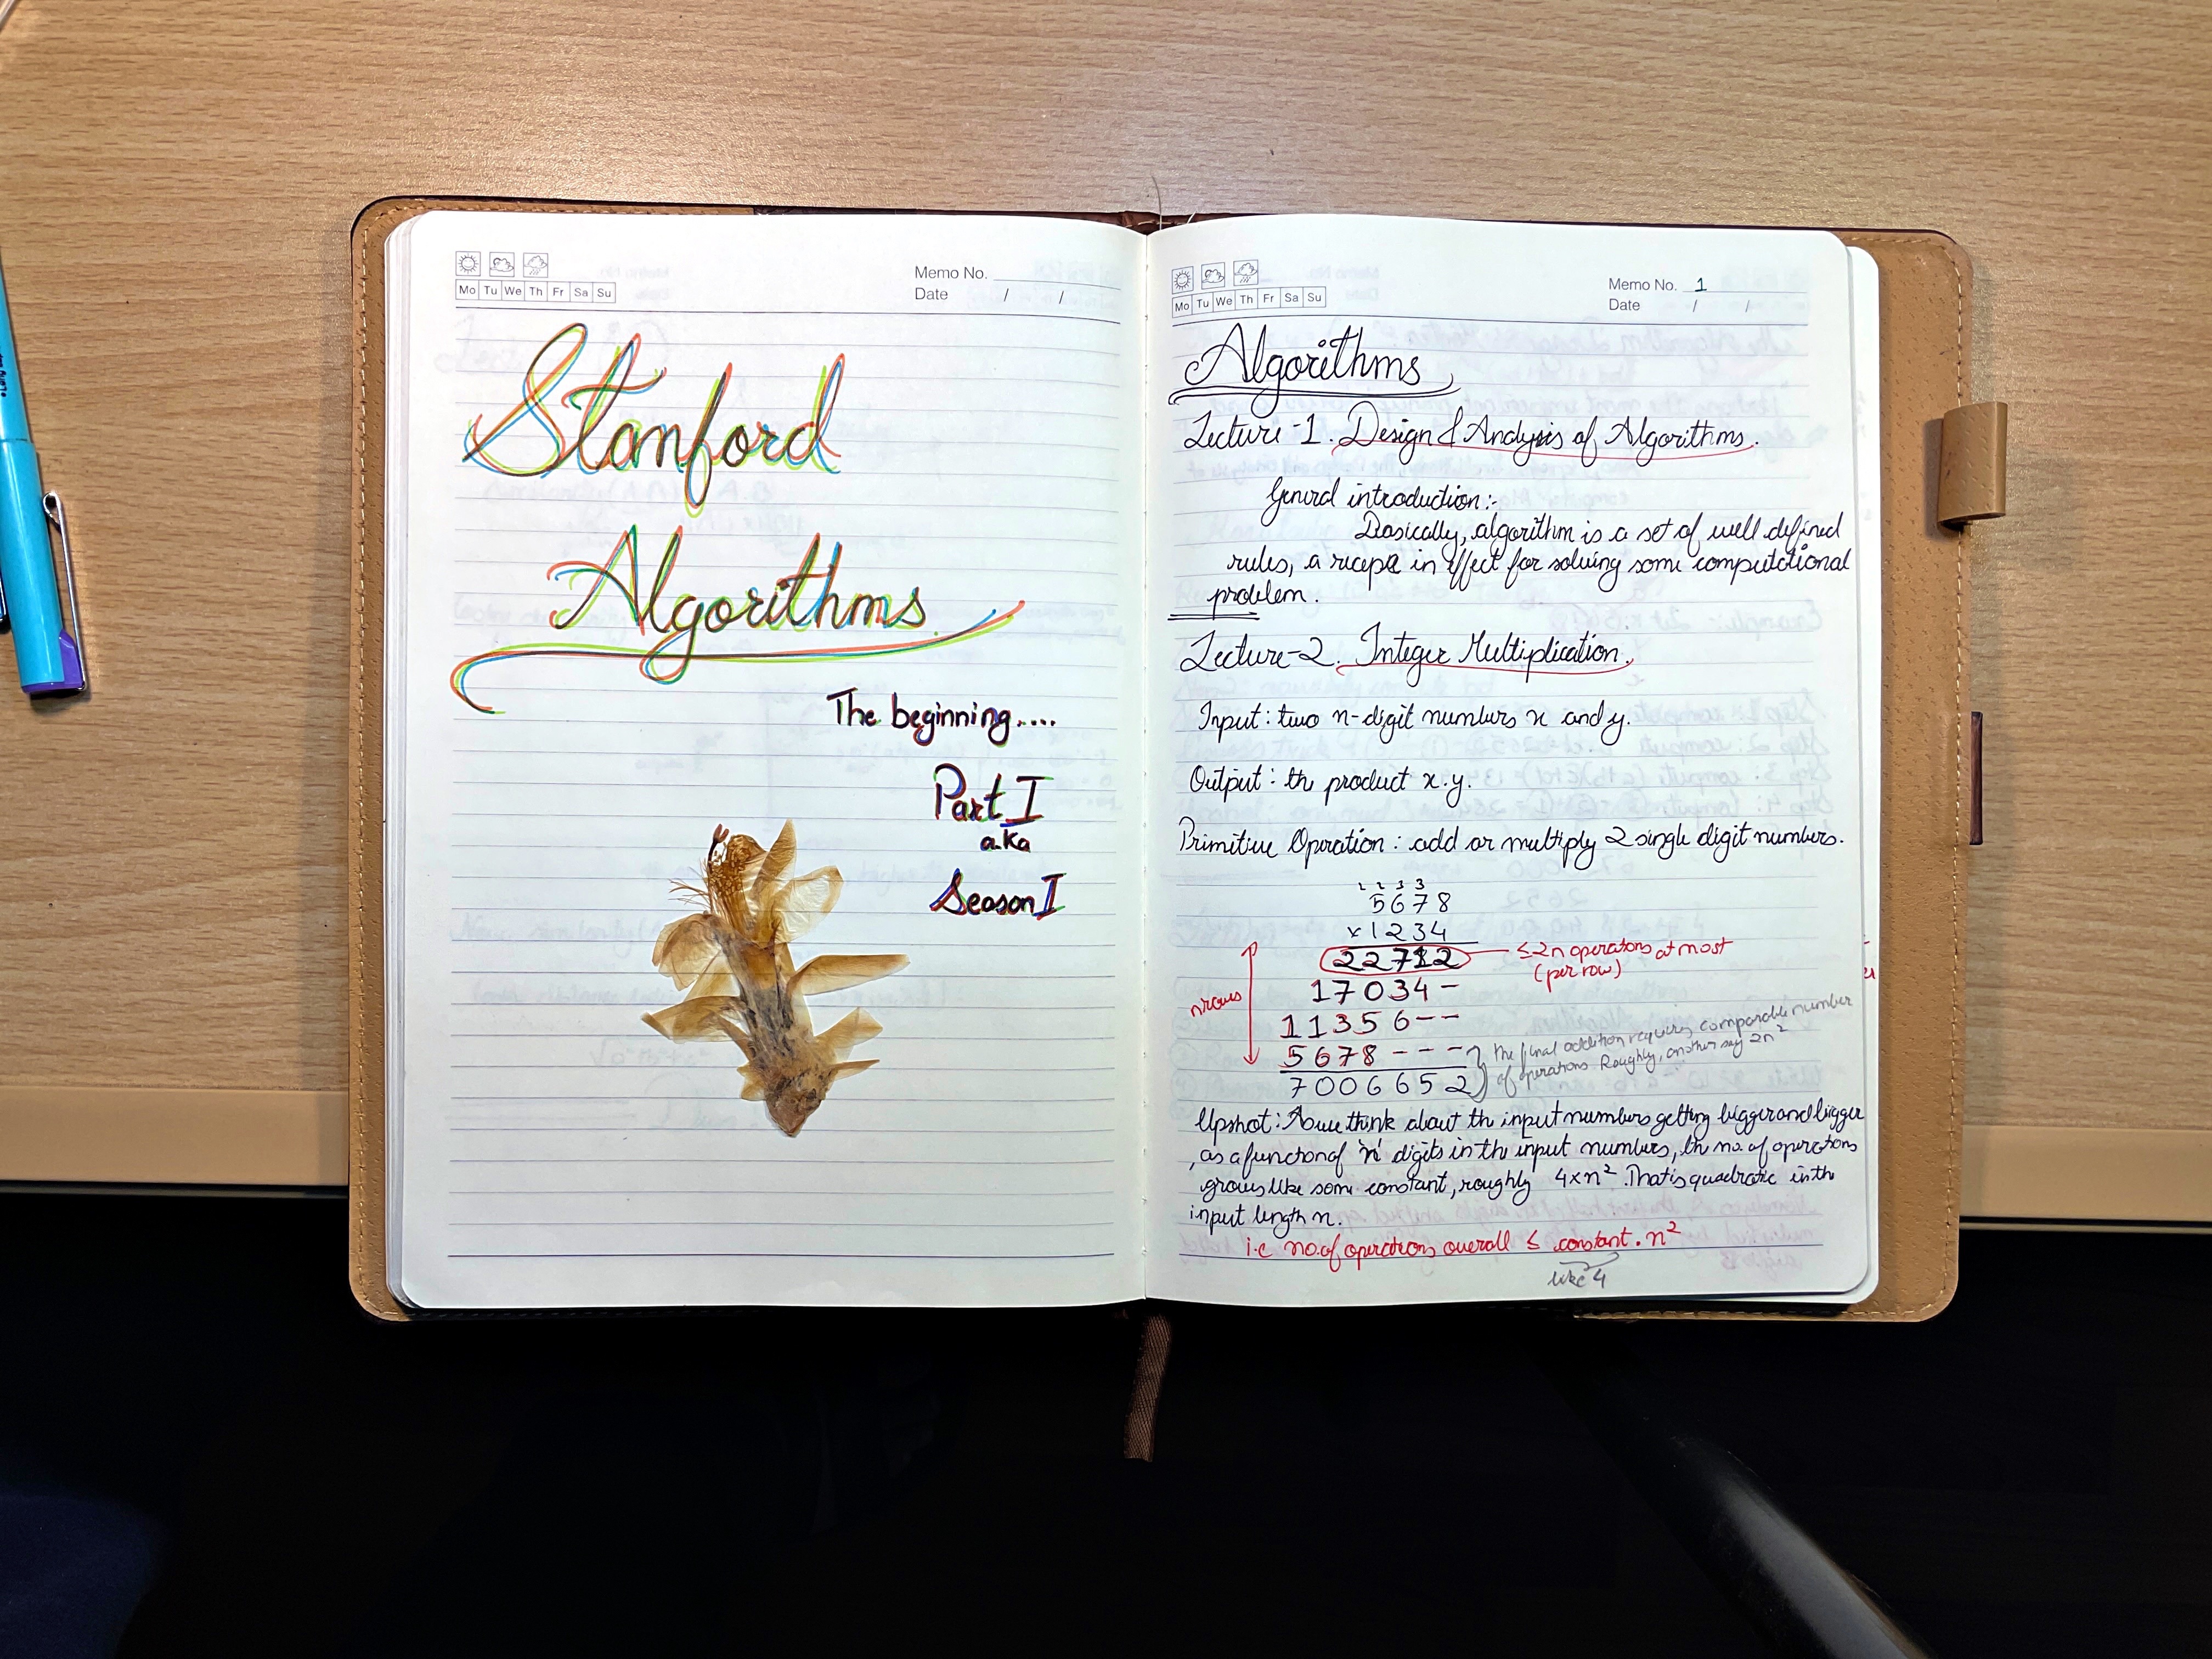 Memo No.
Mo Tu We Th Fr Sa Su
Date / /
Stanford
Algorithms
The beginning....
Part I
a.ka
Season I
Memo No. 1
Mo Tu We Th Fr Sa Su
Date / /
Algorithms
Lecture-1. Design & Analysis of Algorithms.
General introduction:-
Basically, algorithm is a set of well defined
rules, a recepe in effect for solving some computational
problem.
Lecture-2. Integer Multiplication.
Input: two n-digit numbers x and y.
Output: the product x.y.
Primitive Operation: add or multiply 2 single digit numbers.
2 2 3 3
5678
x1234
22712 ≤2n operations at most
(per row)
17034-
n rows
11356--
5678---
the final addition requires comparable number
of operations Roughly, another say 2n²
7006652
Upshot: As we think about the input numbers getting bigger and bigger
, as a function of 'n' digits in the input numbers, the no. of operations
grows like some constant, roughly 4×n². That is quadratic in the
input length n.
i.e no.of operations overall ≤ constant.n²
like 4